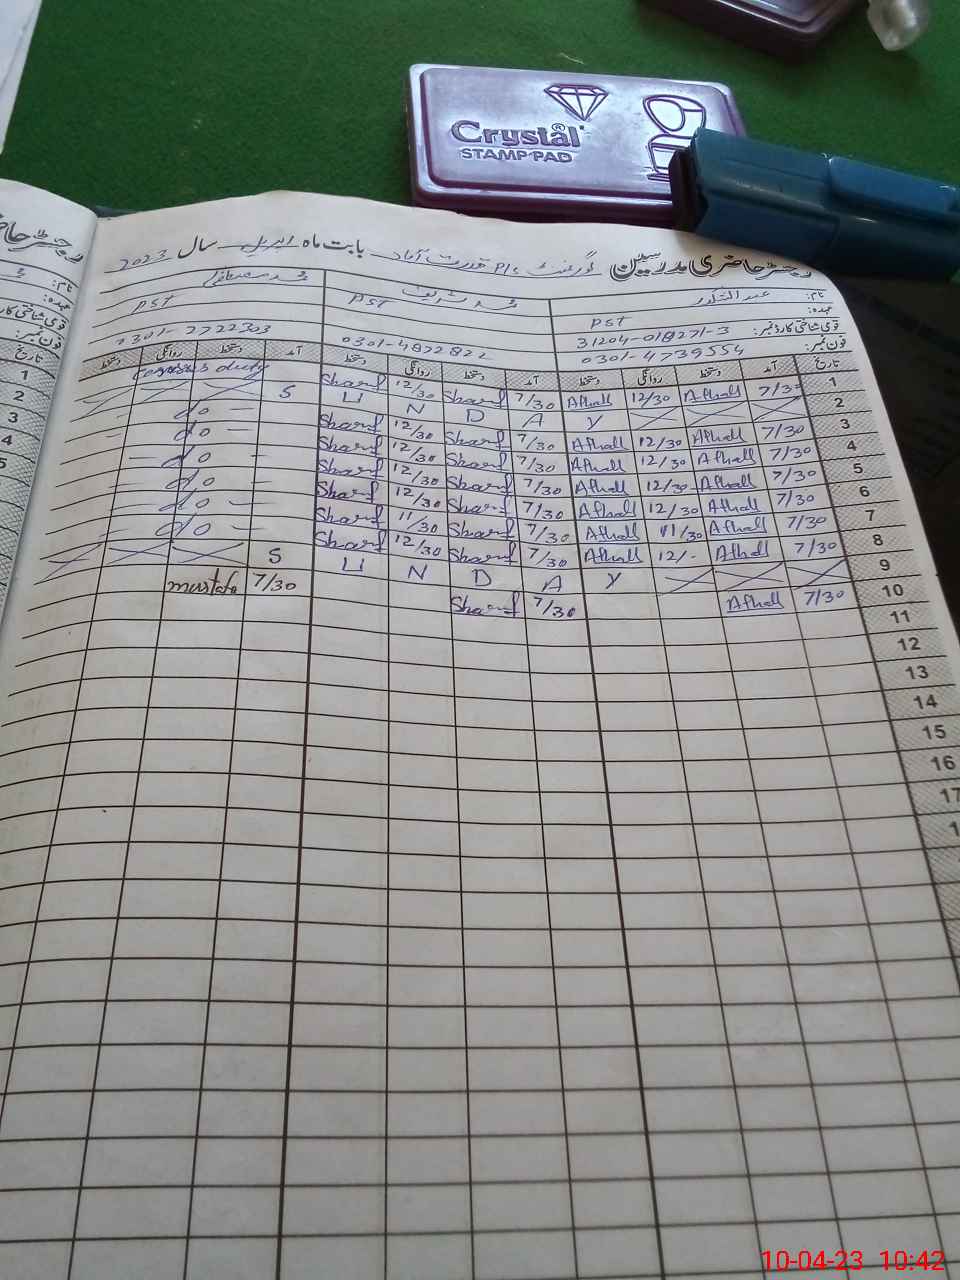 Crystal
STAMP PAD
رجسٹر حاضری مدرسین گورنمنٹ P/s قدرت آباد بابت ماہ اپریل سال 2023
نام: عبدالشکور محمد شریف محمد مصطفیٰ
عہدہ: PST PST PST
قومی شناختی کارڈ نمبر: 31204-018271-3
فون نمبر: 0301-4739554 0301-4872822 0301-2722303
تاریخ آمد دستخط روانگی دستخط آمد دستخط روانگی دستخط آمد دستخط روانگی دستخط
1 7/30 Afhall 12/30 Afhall 7/30 Sharif 12/30 Sharif census duty
2 S U N D A Y
3 7/30 Afhall 12/30 Afhall 7/30 Sharif 12/30 Sharif — do —
4 7/30 Afhall 12/30 Afhall 7/30 Sharif 12/30 Sharif — do —
5 7/30 Afhall 12/30 Afhall 7/30 Sharif 12/30 Sharif — do —
6 7/30 Afhall 12/30 Afhall 7/30 Sharif 12/30 Sharif — do —
7 7/30 Afhall 11/30 Afhall 7/30 Sharif 11/30 Sharif — do —
8 7/30 Afhall 12/- Afhall 7/30 Sharif 12/30 Sharif — do —
9 S U N D A Y
10 7/30 Afhall 7/30 Sharif 7/30 mustafa
11
12
13
14
15
16
17
10-04-23 10:42